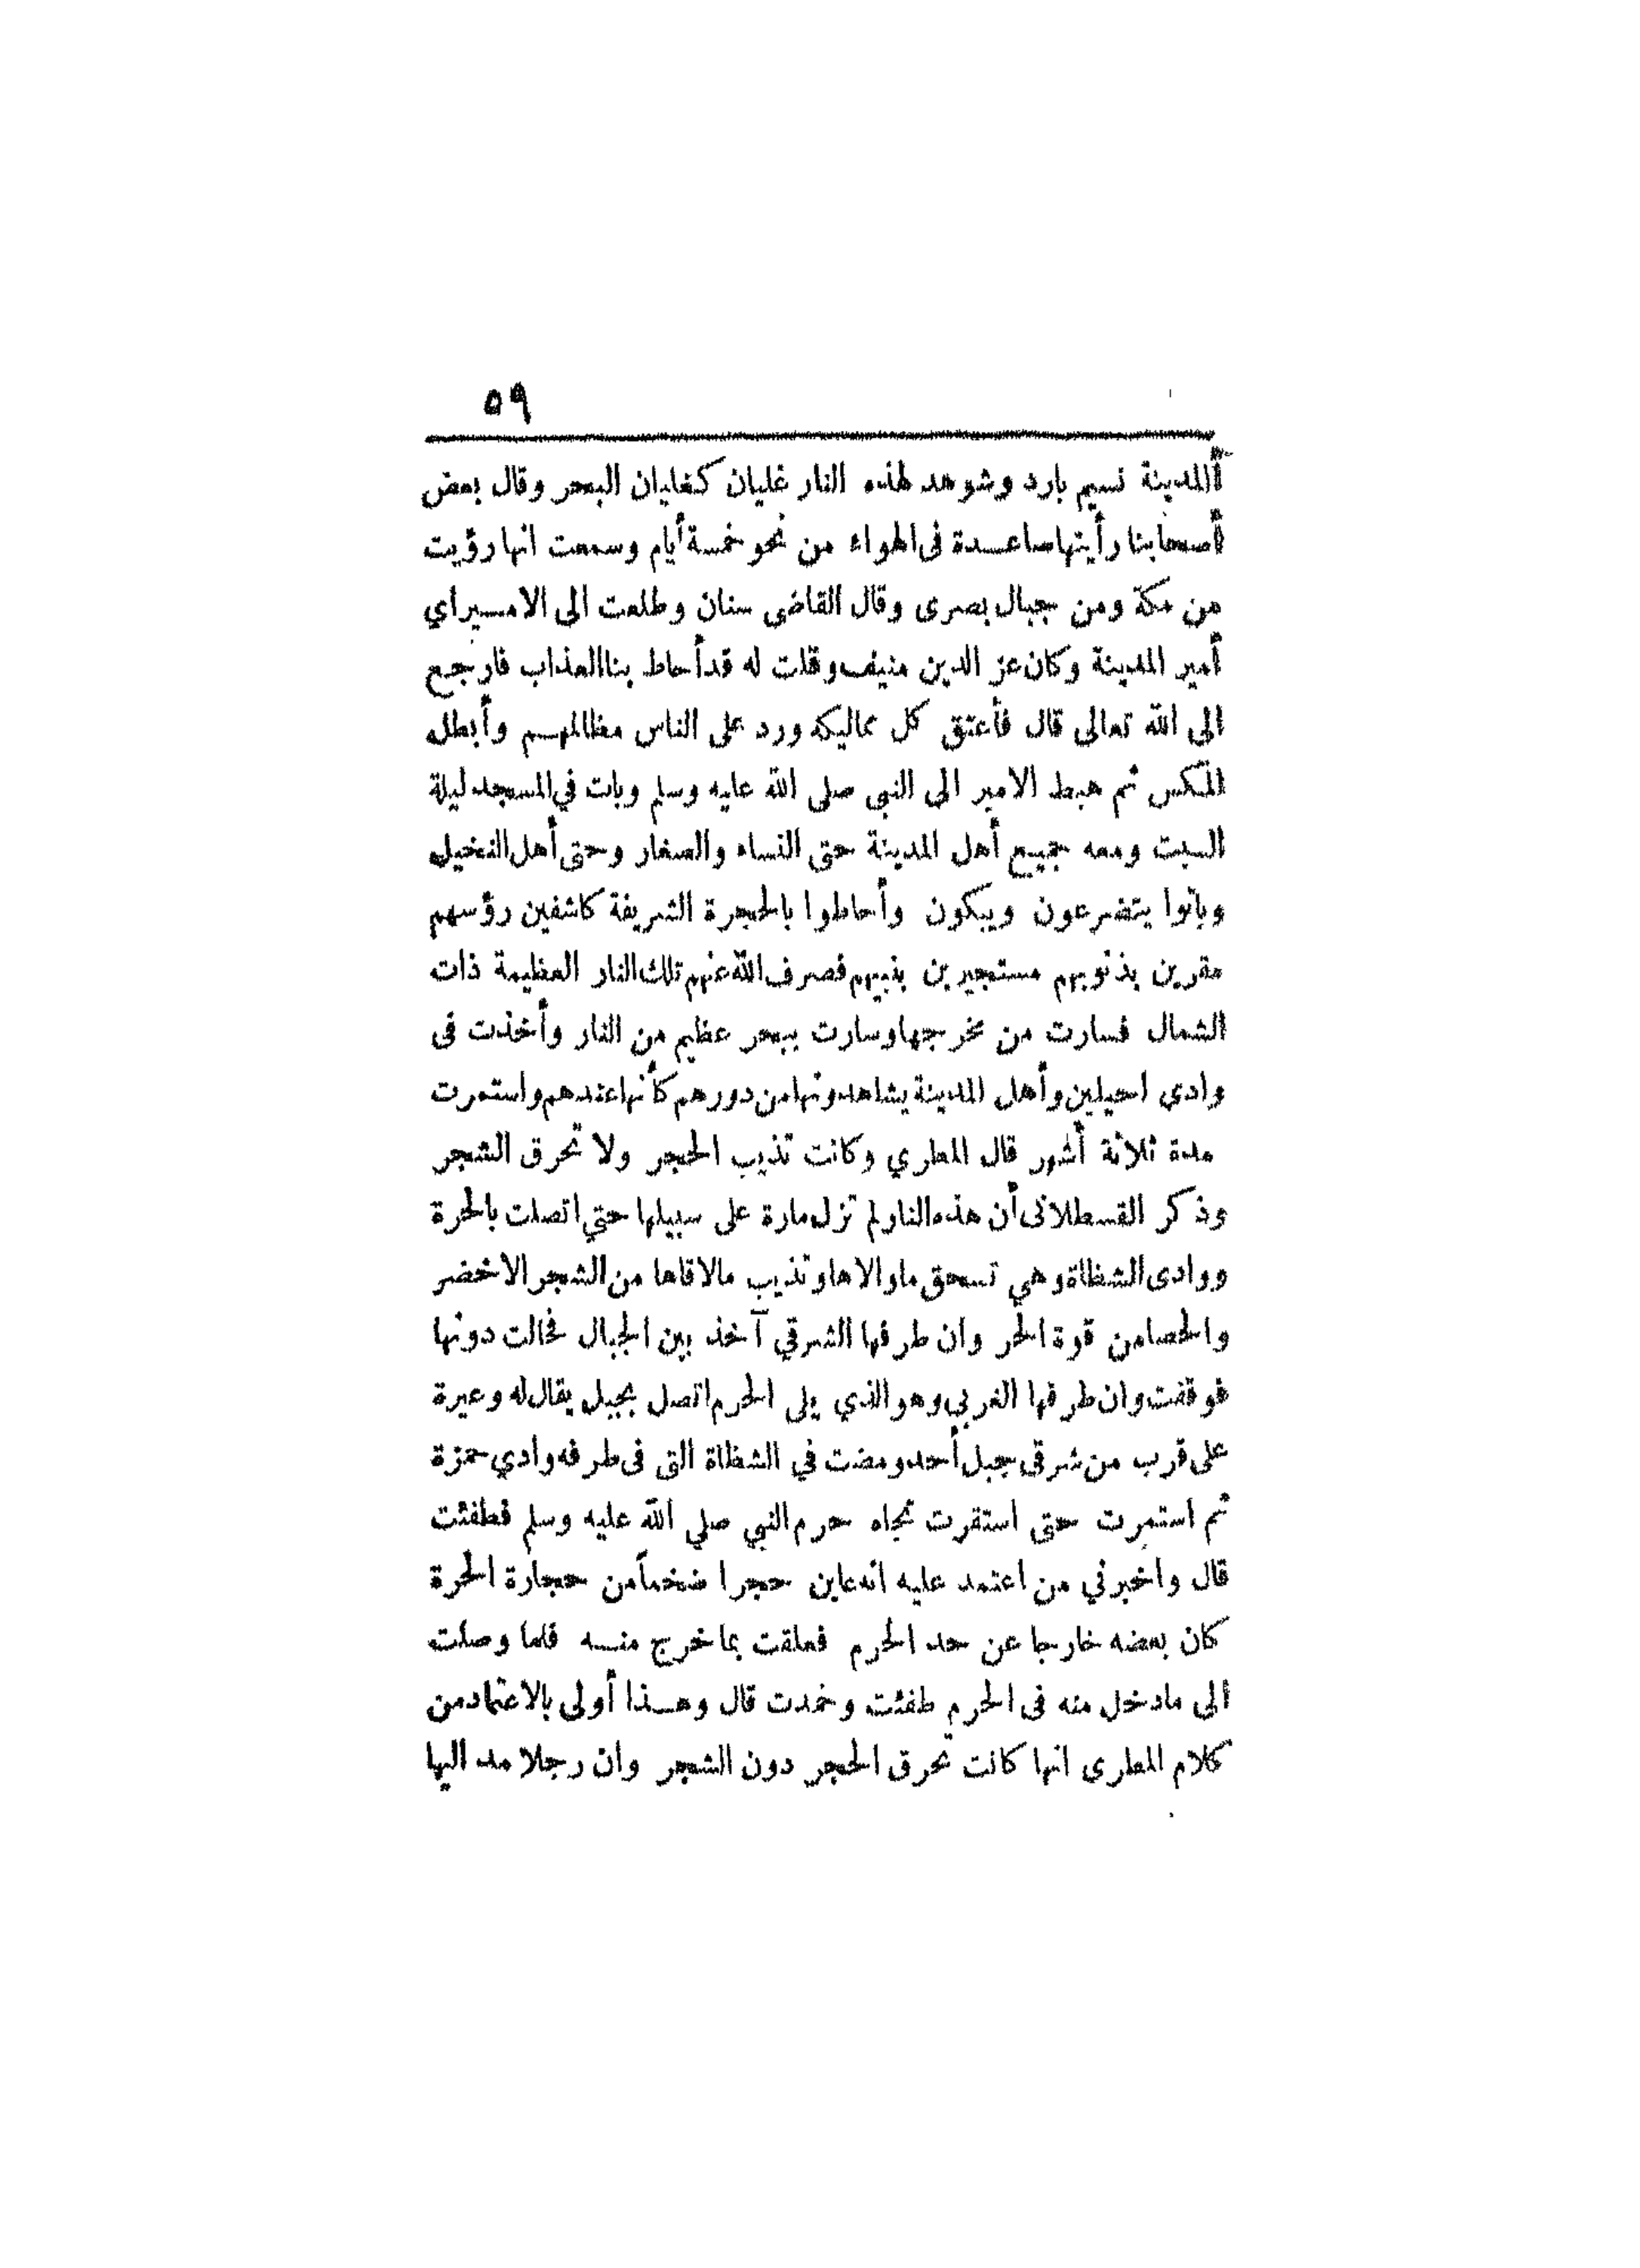 ٥٩
المدينة نسيم بارد وشوهد لهذه النار غليان كغليان البحر وقال بعض
أصحابنا رأيتها صاعدة فى الهواء من نحو خمسة أيام وسمعت انها رؤيت
من مكة ومن جبال بصرى وقال القاضى سنان وطلعت الى الامير اي
أمير المدينة وكان عز الدين منيف وقلت له قد أحاط بنا العذاب فارجع
الى الله تعالى قال فأعتق كل مماليكه ورد على الناس مظالمهم وأبطل
المكس ثم هبط الامير الى النبى صلى الله عليه وسلم وبات في المسجد ليلة
السبت ومعه جميع أهل المدينة حتى النساء والصغار وحتى أهل النخيل
وباتوا يتضرعون ويبكون وأحاطوا بالحجرة الشريفة كاشفين رؤسهم
مقرين بذنوبهم مستجيرين بنبيهم فصرف الله عنهم تلك النار العظيمة ذات
الشمال فسارت من مخرجها وسارت ببحر عظيم من النار وأخذت فى
وادي احيلين وأهل المدينة يشاهدونها من دورهم كأنها عندهم واستمرت
مدة ثلاثة أشهر قال المطري وكانت تذيب الحجر ولا تحرق الشجر
وذكر القسطلانى أن هذه النار لم تزل مارة على سبيلها حتي اتصلت بالحرة
ووادى الشظاة وهي تسحق ماوالاها وتذيب مالاقاها من الشجر الاخضر
والحصا من قوة الحر وان طرفها الشرقي آخذ بين الجبال فحالت دونها
فوقفت وان طرفها الغربي وهو الذي يلى الحرم اتصل بجبل يقال له وعيرة
على قرب من شرقى جبل أحد ومضت في الشظاة التى فى طرفه وادي حمزة
ثم استمرت حتى استقرت تجاه حرم النبي صلي الله عليه وسلم فطفئت
قال واخبرني من اعتمد عليه انه عاين حجرا ضخماً من حجارة الحرة
كان بعضه خارجا عن حد الحرم فعلقت بما خرج منه فلما وصلت
الى مادخل منه فى الحرم طفئت وخمدت قال وهذا أولى بالاعتماد من
كلام المطرى انها كانت تحرق الحجر دون الشجر وان رجلا مد اليها